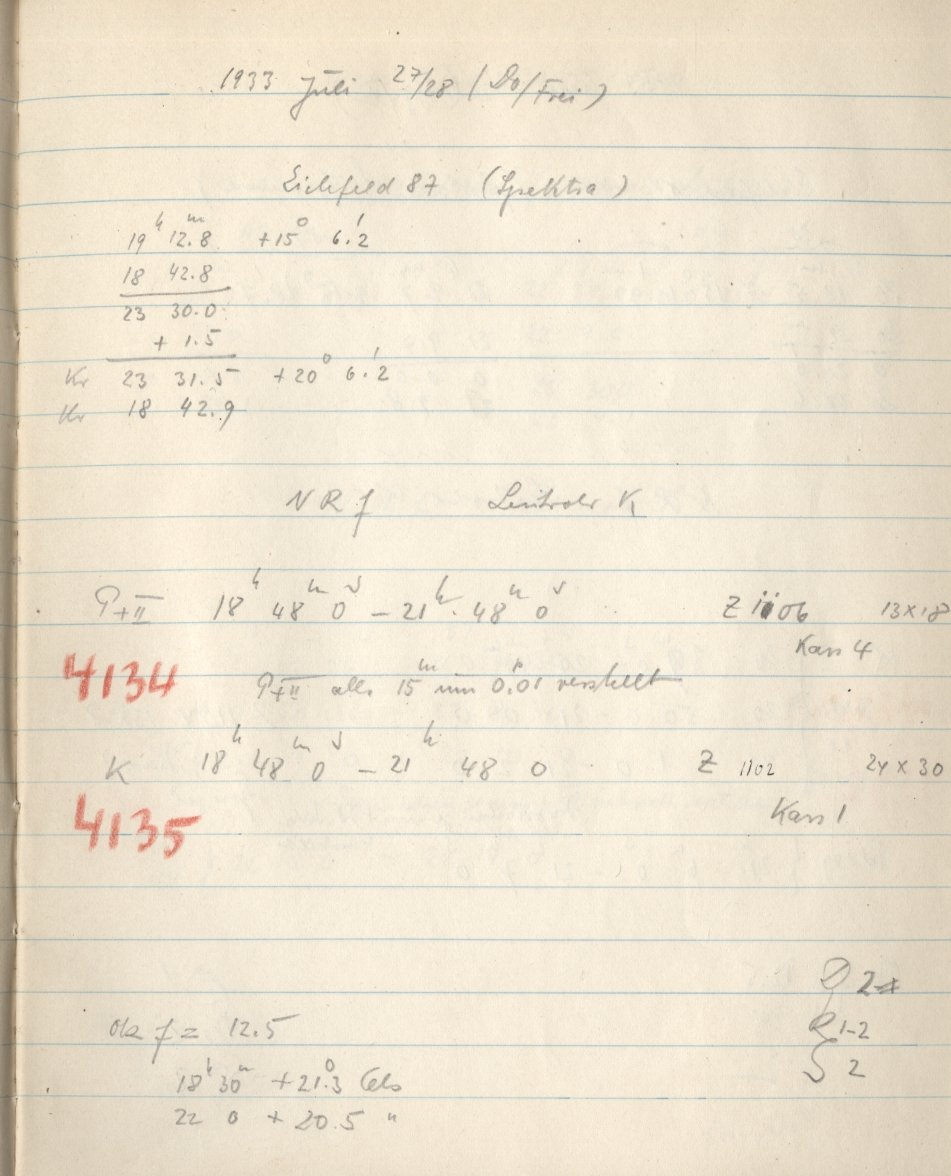 1933 Juli 27/28 (Do/Frei)
Eichfeld 87 (Spektra)
19ʰ 12.8ᵐ +15° 6.'2
18 42.8
23 30.0
+ 1.5
Kr 23 31.5 +20° 6.'2
Ur 18 42.9
NRf Leitrohr K
P+II 18ʰ 48ᵐ 0ˢ – 21ʰ 48ᵐ 0ˢ Z 1106 13x18
Kass 4
4134 P+II alle 15ᵐ um 0.01 verstellt
K 18ʰ 48ᵐ 0ˢ – 21ʰ 48 0 Z 1102 24 x 30
4135 Kass 1
D 2
ok f = 12.5 R 1-2
18ʰ 30ᵐ +21.°3 Cels S 2
22 0 + 20.5 "